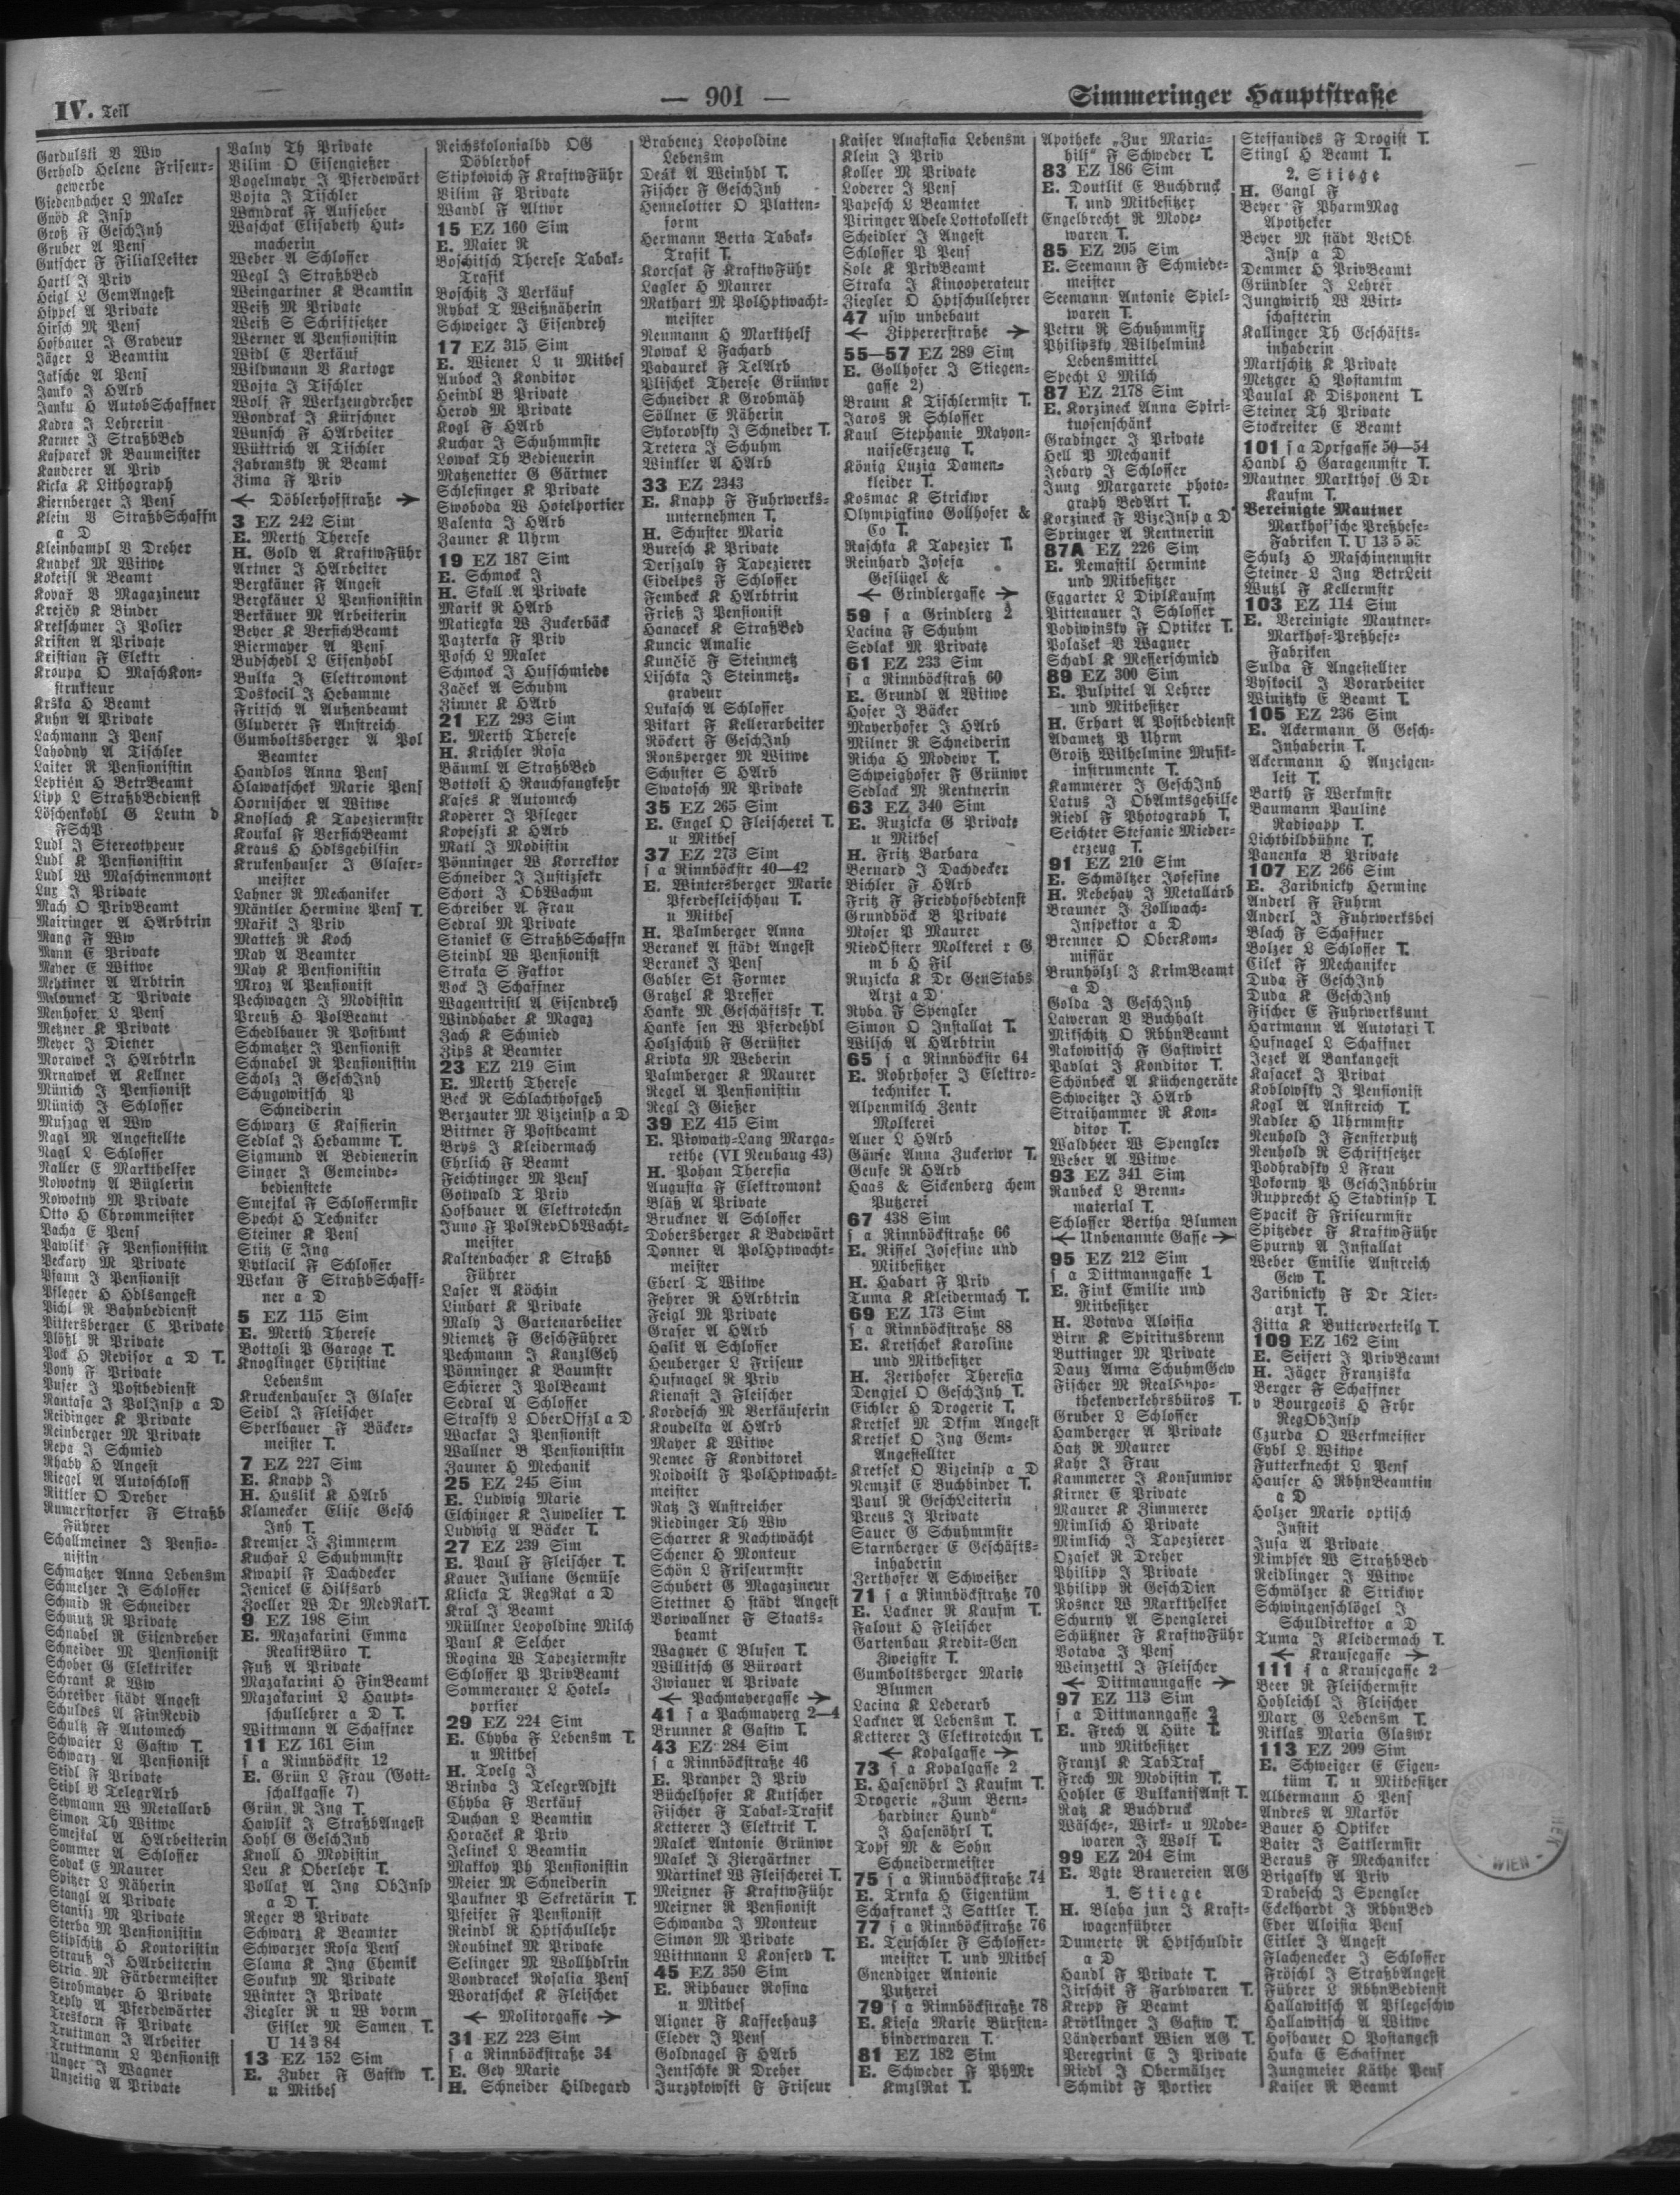 IV. Teil
— 901 —
Simmeringer Hauptstraße
Gardulski V Ww
Gerhold Helene Friseur-
gewerbe
Giedenbacher L Maler
Gnöd K Insp
Groß F GeschInh
Gruber A Pens
Gutscher F FilialLeiter
Hartl J Priv
Heigl L GemAngest
Hippel A Private
Hirsch M Pens
Hofbauer J Graveur
Jäger L Beamtin
Jaksche A Pens
Janko J HArb
Janku H AutobSchaffner
Kadra J Lehrerin
Karner J StraßbBed
Kasparek R Baumeister
Kanderer A Priv
Kicka K Lithograph
Kiernberger J Pens
Klein V StraßbSchaffn
a D
Kleinhampl V Dreher
Knapek M Witwe
Kokeisl R Beamt
Kovař V Magazineur
Krejčy K Binder
Kretschmer J Polier
Kristen A Private
Kristian F Elektr
Kroupa O MaschKon-
strukteur
Krska H Beamt
Kuhn A Private
Lachmann J Pens
Lahodny A Tischler
Laiter R Pensionistin
Leptién H BetrBeamt
Lipp L StraßbBedienst
Löschenkohl G Leutn d
FSchP
Ludl J Stereotypeur
Ludl K Pensionistin
Ludl W Maschinenmont
Lux J Private
Mach O PrivBeamt
Mairinger A HArbtrin
Mang F Ww
Mann E Private
Mayer E Witwe
Mehtiner A Arbtrin
Melounek T Private
Menhofer L Pens
Metzner K Private
Meyer J Diener
Morawek J HArbtrin
Mrnawek A Kellner
Münich J Pensionist
Münich J Schlosser
Muszag A Ww
Nagl M Angestellte
Nagl L Schlosser
Naller E Markthelfer
Nowotny A Büglerin
Nowotny M Private
Otto H Chrommeister
Pacha E Pens
Pawlik F Pensionistin
Peckary M Private
Pfann J Pensionist
Pfleger H Hdlsangest
Pichl R Bahnbedienst
Pittersberger C Private
Plößl R Private
Pock H Revisor a D T.
Pony F Private
Puser J Postbedienst
Rantasa J PolInsp a D
Reidinger K Private
Reinberger M Private
Repa J Schmied
Rhaby H Angest
Riegel A Autoschloss
Rittler O Dreher
Rumerstorfer F Straßb
Führer
Schallmeiner J Pensio-
nistin
Schmatzer Anna Lebensm
Schmelzer J Schlosser
Schmid R Schneider
Schmutz R Private
Schnabel R Eisendreher
Schneider M Pensionist
Schober G Elektriker
Schrank K Ww
Schreiber städt Angest
Schuldes A FinRevid
Schultz F Automech
Schwaier L Gastw T.
Schwarz A Pensionist
Seidl F Private
Seipl V TelegrArb
Seymann W Metallarb
Simon Th Witwe
Smejkal A HArbeiterin
Sommer A Schlosser
Sovak E Maurer
Spitzer L Näherin
Stangl A Private
Stanisz M Private
Sterba M Pensionistin
Stipschitz H Kontoristin
Strauß J HArbeiterin
Stria M Färbermeister
Strohmayer H Private
Teply A Pferdewärter
Treskorn F Private
Truttman J Arbeiter
Truttmann L Pensionist
Unger J Wagner
Unzeitig A Private
Valny Th Private
Vilim O Eisengießer
Vogelmayr J Pferdewärt
Vojta J Tischler
Wandrak F Aufseher
Waschak Elisabeth Hut-
macherin
Weber A Schlosser
Wegl J StraßbBed
Weingartner K Beamtin
Weiß M Private
Weiß S Schriftsetzer
Werner A Pensionistin
Widl E Verkäuf
Wildmann V Kartogr
Wojta J Tischler
Wolf F Werkzeugdreher
Wondrak J Kürschner
Wunsch F HArbeiter
Wüttrich A Tischler
Zabransky R Beamt
Zima F Priv
← Döblerhofstraße →
3 EZ 242 Sim
E. Merth Therese
H. Gold A KraftwFühr
Artner J HArbeiter
Bergkäuer F Angest
Bergkäuer L Pensionistin
Berkäuer M Arbeiterin
Beyer K VersichBeamt
Biermayer A Pens
Budschedl L Eisenhobl
Bulka J Elektromont
Doskocil J Hebamme
Fritsch A Außenbeamt
Gluderer F Anstreich
Gumboltsberger A Pol
Beamter
Handlos Anna Pens
Hlawatschek Marie Pens
Hornischer A Witwe
Knoflach K Tapeziermstr
Koukal F VersichBeamt
Kraus H Hdlsgehilfin
Krukenhauser J Glaser-
meister
Lahner R Mechaniker
Mäntler Hermine Pens T.
Mařik J Priv
Matteß R Koch
May A Beamter
May K Pensionistin
Mroz A Pensionist
Pechwagen J Modistin
Preuß H PolBeamt
Schedlbauer R Postbmt
Schmatzer J Pensionist
Schnabel R Pensionistin
Scholz J GeschInh
Schugowitsch P
Schneiderin
Schwarz E Kassierin
Sedlak J Hebamme T.
Sigmund A Bedienerin
Singer J Gemeinde-
bedienstete
Smejkal F Schlossermstr
Specht H Techniker
Steiner K Pens
Stitz E Ing
Vytlacil F Schlosser
Wekan F StraßbSchaff-
ner a D
5 EZ 115 Sim
E. Merth Therese
Bottoli P Garage T.
Knoglinger Christine
Lebensm
Kruckenhauser J Glaser
Seidl J Fleischer
Sperlbauer F Bäcker-
meister T.
7 EZ 227 Sim
E. Knapp J
H. Huslik K HArb
Klamecker Elise Gesch
Inh T.
Kremser J Zimmerm
Kuchař L Schuhmmstr
Kwapil F Dachdecker
Jenicek E Hilfsarb
Zoeller W Dr MedRat T.
9 EZ 198 Sim
E. Mazakarini Emma
RealitBüro T.
Fuß A Private
Mazakarini H FinBeamt
Mazakarini L Haupt-
schullehrer a D T.
Wittmann A Schaffner
11 EZ 161 Sim
s a Rinnböckstr 12
E. Grün L Frau (Gott-
schalkgasse 7)
Grün R Ing T.
Hawlik J StraßbAngest
Hohl G GeschInh
Knoll H Modistin
Leu K Oberlehr T.
Pollak A Ing ObInsp
a D T.
Reger B Private
Schwarz K Beamter
Schwarzer Rosa Pens
Slama K Ing Chemik
Soukup M Private
Winter J Private
Ziegler R u W vorm
Eisler M Samen T.
U 14 3 84
13 EZ 152 Sim
E. Zuber F Gastw T.
u Mitbes
Reichskolonialbd OG
Döblerhof
Stipkowich F KraftwFühr
Vilim F Private
Wandl F Altwr
15 EZ 160 Sim
E. Maier R
Boschitsch Therese Tabak-
Trafik
Boschitz J Verkäuf
Rybak T Weißnäherin
Schweiger J Eisendreh
17 EZ 315 Sim
E. Wiener L u Mitbes
Aubock J Konditor
Heindl B Private
Herod M Private
Kogl F HArb
Kuchar J Schuhmmstr
Lowak Th Bedienerin
Matzenetter G Gärtner
Schlesinger K Private
Swoboda W Hotelportier
Valenta J HArb
Zauner K Uhrm
19 EZ 187 Sim
E. Schmock J
H. Skall A Private
Marik R HArb
Matiegka W Zuckerbäck
Pazterka F Priv
Posch L Maler
Schmock J Hufschmiede
Začek A Schuhm
Zinner K HArb
21 EZ 293 Sim
E. Merth Therese
H. Krichler Rosa
Bäuml A StraßbBed
Bottoli H Rauchfangkehr
Kases K Automech
Koperer J Pfleger
Kopeszki K HArb
Matl J Modistin
Pönninger W Korrektor
Schneider J Justizsekr
Schort J ObWachm
Schreiber A Frau
Sedral M Private
Staniek E StraßbSchaffn
Steindl W Pensionist
Straka S Faktor
Vock J Schaffner
Wagentristl A Eisendreh
Windhaber K Magaz
Zach K Schmied
Zips K Beamter
23 EZ 219 Sim
E. Merth Therese
Beck R Schlachthofgeh
Berzauter M Vizeinsp a D
Bittner F Postbeamt
Brys J Kleidermach
Ehrlich F Beamt
Feichtinger M Pens
Gotwald T Priv
Hofbauer A Elektrotechn
Juno F PolRevObWacht-
meister
Kaltenbacher K Straßb
Führer
Laser A Köchin
Linhart K Private
Maly J Gartenarbeiter
Niemetz F GeschFührer
Pechmann J KanzlGeh
Pönninger K Baumstr
Schierer J PolBeamt
Sedral A Schlosser
Strasky L OberOffzl a D
Wackar J Pensionist
Wallner B Pensionistin
Zauner H Mechanik
25 EZ 245 Sim
E. Ludwig Marie
Elchinger K Juwelier T.
Ludwig A Bäcker T.
27 EZ 239 Sim
E. Paul F Fleischer T.
Kauer Juliane Gemüse
Klicka T RegRat a D
Kral J Beamt
Müllner Leopoldine Milch
Paul K Selcher
Rogina W Tapeziermstr
Schlosser P PrivBeamt
Sommerauer L Hotel-
portier
29 EZ 224 Sim
E. Chyba F Lebensm T.
u Mitbes
H. Toelg J
Brinda J TelegrAdjkt
Chyba F Verkäuf
Duchan L Beamtin
Horaček K Priv
Jelinek L Beamtin
Maktoy Ph Pensionistin
Meier M Schneiderin
Paukner P Sekretärin T.
Pfeifer F Pensionist
Reindl R Hptschullehr
Roubinek M Private
Selinger M Wollhdlrin
Vondracek Rosalia Pens
Woratschek K Fleischer
← Molitorgasse →
31 EZ 223 Sim
s a Rinnböckstraße 34
E. Gey Marie
H. Schneider Hildegard
Brabenez Leopoldine
Lebensm
Deák A Weinhdl T.
Fischer F GeschInh
Hennelotter O Platten-
form
Hermann Berta Tabak-
Trafik T.
Korcsak F KraftwFühr
Lagler H Maurer
Mathart M PolHptwacht-
meister
Neumann H Markthelf
Nowak L Facharb
Padaurek F TelArb
Plischek Therese Grünwr
Schneider K Grobmäh
Söllner E Näherin
Sykorovsky J Schneider T.
Tretera J Schuhm
Winkler A HArb
33 EZ 2343
E. Knapp F Fuhrwerks-
unternehmen T.
H. Schuster Maria
Buresch K Private
Derszaly F Tapezierer
Eidelpes F Schlosser
Fembeck K HArbtrin
Frieß J Pensionist
Hanacek K StraßBed
Kuncic Amalie
Kunčič F Steinmetz
Lischka J Steinmetz-
graveur
Lukasch A Schlosser
Pikart F Kellerarbeiter
Röckert F GeschInh
Ronsperger M Witwe
Schuster S HArb
Swatosch M Private
35 EZ 265 Sim
E. Engel O Fleischerei T.
u Mitbes
37 EZ 273 Sim
s a Rinnböckstr 40—42
E. Wintersberger Marie
Pferdefleischhau T.
u Mitbes
H. Palmberger Anna
Beranek A städt Angest
Beranek J Pens
Gabler St Former
Gratzel K Presser
Hanke M Geschäftsfr T.
Hanke sen W Pferdehdl
Holzschuh F Gerüster
Krivka M Weberin
Palmberger K Maurer
Regel A Pensionistin
Regl J Gießer
39 EZ 415 Sim
E. Piowaty-Lang Marga-
rethe (VI Neubaug 43)
H. Pohan Theresia
Augusta F Elektromont
Bläß A Private
Bruckner A Schlosser
Dobersberger K Badewärt
Donner A PolHptwacht-
meister
Eberl T Witwe
Fehrer R HArbtrin
Feigl M Private
Graser A HArb
Halik A Schlosser
Heuberger L Friseur
Hufnagel R Priv
Kienast J Fleischer
Kordesch M Verkäuferin
Koudelka A HArb
Mayer K Witwe
Nemec F Konditorei
Noidoilt F PolHptwacht-
meister
Ratz J Anstreicher
Riedinger Th Ww
Scharrer K Nachtwächt
Schener H Monteur
Schön L Friseurmstr
Schubert G Magazineur
Stettner H städt Angest
Vorwallner F Staats-
beamt
Wagner C Blusen T.
Willitsch G Büroart
Zwiauer A Private
← Pachmayergasse →
41 s a Pachmayerg 2—4
Brunner K Gastw T.
43 EZ 284 Sim
s a Rinnböckstraße 46
E. Pranper J Priv
Büchelhofer K Kutscher
Fischer F Tabak-Trafik
Ketterer J Elektrik T.
Malek Antonie Grünwr
Malek J Ziergärtner
Martinek W Fleischerei T.
Meixner F KraftwFühr
Meixner R Pensionist
Schwanda J Monteur
Simon M Private
Wittmann L Konserv T.
45 EZ 350 Sim
E. Ripbauer Rosina
u Mitbes
Aigner F Kaffeehaus
Eleder J Pens
Goldnagel F HArb
Jentschke R Dreher
Jurzykowski F Friseur
Kaiser Anastasia Lebensm
Klein J Priv
Koller M Private
Loderer J Pens
Papesch L Beamter
Piringer Adele Lottokollekt
Scheidler J Angest
Schlosser P Pens
Sole K PrivBeamt
Straka J Kinooperateur
Ziegler O Hptschullehrer
47 usw unbebaut
← Zippererstraße →
55—57 EZ 289 Sim
E. Gollhofer J Stiegen-
gasse 2)
Braun K Tischlermstr T.
Jaros R Schlosser
Kaul Stephanie Mayon-
naiseErzeug T.
König Luzia Damen-
kleider T.
Kosmac K Strickwr
Olympiakino Gollhofer &
Co T.
Raschka K Tapezier T.
Reinhard Josefa
Geflügel &
← Grindlergasse →
59 s a Grindlerg 2
Lacina F Schuhm
Sedlak M Private
61 EZ 233 Sim
s a Rinnböckstraß 60
E. Grundl A Witwe
Hofer J Bäcker
Mayerhofer J HArb
Milner R Schneiderin
Richa H Modewr T.
Schweighofer F Grünwr
Sedlack M Rentnerin
63 EZ 340 Sim
E. Ruzicka G Private
u Mitbes
H. Fritz Barbara
Bernard J Dachdecker
Bichler F HArb
Fritz F Friedhofbedienst
Grundböck B Private
Moser P Maurer
NiedÖsterr Molkerei r G
m b H Fil
Ruzicka K Dr GenStabs
Arzt a D
Ryba F Spengler
Simon O Installat T.
Wilsch A HArbtrin
65 s a Rinnböckstr 64
E. Rohrhofer J Elektro-
techniker T.
Alpenmilch Zentr
Molkerei
Auer L HArb
Gänse Anna Zuckerwr T.
Geuse R HArb
Haas & Sickenberg chem
Putzerei
67 438 Sim
s a Rinnböckstraße 66
E. Rissel Josefine und
Mitbesitzer
H. Habart F Priv
Tuma K Kleidermach T.
69 EZ 173 Sim
s a Rinnböckstraße 88
E. Kretschek Karoline
und Mitbesitzer
H. Zerthofer Theresia
Dengjel O GeschInh T.
Eichler H Drogerie T.
Kretsek M Dkfm Angest
Kretsek O Ing Gem-
Angestellter
Kretsek O Vizeinsp a D
Nemzik E Buchbinder T.
Paul R GeschLeiterin
Preus J Private
Sauer G Schuhmmstr
Starnberger E Geschäfts-
inhaberin
Zerthofer A Schweißer
71 s a Rinnböckstraße 70
E. Lackner R Kaufm T.
Falout H Fleischer
Gartenbau Kredit-Gen
Zweigstr T.
Gumboltsberger Marie
Blumen
Lacina K Lederarb
Lackner A Lebensm T.
Ketterer J Elektrotechn T.
← Kopalgasse →
73 s a Kopalgasse 2
E. Hasenöhrl J Kaufm T.
Drogerie „Zum Bern-
hardiner Hund“
J Hasenöhrl T.
Topf M & Sohn
Schneidermeister
75 s a Rinnböckstraße 74
E. Trnka H Eigentüm
Schafranek J Sattler T.
77 s a Rinnböckstraße 76
E. Teuschler F Schlosser-
meister T. und Mitbes
Gnendiger Antonie
Putzerei
79 s a Rinnböckstraße 78
E. Kiesa Marie Bürsten-
binderwaren T.
81 EZ 182 Sim
E. Schweder F PhMr
KmzlRat T.
Apotheke „Zur Maria-
hilf“ F Schweder T.
83 EZ 186 Sim
E. Doutlik E Buchdruck
T. und Mitbesitzer
Engelbrecht R Mode-
waren T.
85 EZ 205 Sim
E. Seemann F Schmiede-
meister
Seemann Antonie Spiel-
waren T.
Petru R Schuhmmstr
Philipsky Wilhelmine
Lebensmittel
Specht L Milch
87 EZ 2178 Sim
E. Korzineck Anna Spiri-
tuosenschänk
Gradinger J Private
Hell P Mechanik
Jebary J Schlosser
Jung Margarete photo-
graph BedArt T.
Korzineck F VizeInsp a D
Springer A Rentnerin
87A EZ 226 Sim
E. Nemastil Hermine
und Mitbesitzer
Eggarter L DiplKaufm
Pittenauer J Schlosser
Podiwinsky F Optiker T.
Polašek V Wagner
Schadl K Messerschmied
89 EZ 300 Sim
E. Pulpitel A Lehrer
und Mitbesitzer
H. Erhart A Postbedienst
Adametz P Uhrm
Groiß Wilhelmine Musik-
instrumente T.
Kammerer J GeschInh
Latus J ObAmtsgehilfe
Riedl F Photograph T.
Seichter Stefanie Mieder-
erzeug T.
91 EZ 210 Sim
E. Schmöltzer Josefine
H. Nebehay J Metallarb
Brauner J Zollwach-
Inspektor a D
Brenner O OberKom-
missär
Brunhölzl J KrimBeamt
a D
Golda J GeschInh
Laweran V Buchhalt
Mikschitz O RbhnBeamt
Nakowitsch F Gastwirt
Pavlat J Konditor T.
Schönbeck A Küchengeräte
Schweitzer J HArb
Straihammer R Kon-
ditor T.
Waldheer W Spengler
Weber A Witwe
93 EZ 341 Sim
Raubeck L Brenn-
material T.
Schlosser Bertha Blumen
← Unbenannte Gasse →
95 EZ 212 Sim
s a Dittmanngasse 1
E. Fink Emilie und
Mitbesitzer
H. Votava Aloisia
Birn K Spiritusbrenn
Buttinger M Private
Danz Anna SchuhmGew
Fischer M RealHypo-
thekenverkehrsbüros T.
Gruber L Schlosser
Hamberger A Private
Hatz R Maurer
Kahr J Frau
Kammerer J Konsumwr
Kirner E Private
Maurer K Zimmerer
Mimlich H Private
Mimlich J Tapezierer
Ozasek R Dreher
Philipp J Private
Philipp R GeschDien
Rosner W Markthelfer
Schurny A Spenglerei
Schützner F KraftwFühr
Votava J Pens
Weinzettl J Fleischer
← Dittmanngasse →
97 EZ 113 Sim
s a Dittmanngasse 2
E. Frech A Hüte T.
und Mitbesitzer
Franzl K TabTraf
Frech M Modistin T.
Hohler E VulkanisAnst T.
Ratz K Buchdruck
Wäsche-, Wirk- u Mode-
waren J Wolf T.
99 EZ 204 Sim
E. Vgte Brauereien AG
1. Stiege
H. Blaha jun J Kraft-
wagenführer
Dumerte R Hptschuldir
a D
Handl F Private T.
Jirschik F Farbwaren T.
Krepp F Beamt
Krötlinger J Gastw T.
Länderbank Wien AG T.
Peregrini E J Private
Riedl J Obermälzer
Schmidt F Portier
Steffanides F Drogist T.
Stingl H Beamt T.
2. Stiege
H. Gangl F
Beyer F PharmMag
Apotheker
Beyer M städt VetOb
Insp a D
Demmer H PrivBeamt
Gründler J Lehrer
Jungwirth W Wirt-
schafterin
Kallinger Th Geschäfts-
inhaberin
Martschitz K Private
Metzger H Postamtm
Paulal K Disponent T.
Steiner Th Private
Stockreiter E Beamt
101 s a Dorfgasse 50—54
Handl H Garagenmstr T.
Mautner Markhof G Dr
Kaufm T.
Vereinigte Mautner
Markhof'sche Preßhefe-
Fabriken T. U 13 5 55
Schulz H Maschinenmstr
Steiner L Ing BetrLeit
Wutzl F Kellermstr
103 EZ 114 Sim
E. Vereinigte Mautner-
Markhof-Preßhefe-
Fabriken
Sulda F Angestellter
Vyskocil J Vorarbeiter
Winitzky E Beamt T.
105 EZ 236 Sim
E. Ackermann G Gesch-
Inhaberin T.
Ackermann H Anzeigen-
leit T.
Barth F Werkmstr
Baumann Pauline
Radioapp T.
Lichtbildbühne T.
Panenka B Private
107 EZ 266 Sim
E. Zaribnicky Hermine
Anderl F Fuhrm
Anderl J Fuhrwerksbes
Blach F Schaffner
Bolzer L Schlosser T.
Cilek F Mechaniker
Duda F GeschInh
Duda K GeschInh
Fischer E Fuhrwerksunt
Hartmann A Autotaxi T.
Hufnagel L Schaffner
Jezek A Bankangest
Kasacek J Privat
Koblowsky J Pensionist
Kogl A Anstreich T.
Nadler H Uhrmmstr
Neuhold J Fensterputz
Neuhold R Schriftsetzer
Podhradsky L Frau
Pokorny P GeschInhbrin
Rupprecht H Stadtinsp T.
Spacik F Friseurmstr
Spitzeder F KraftwFühr
Spurny A Installat
Weber Emilie Anstreich
Gew T.
Zaribnicky F Dr Tier-
arzt T.
Zitta K Butterverteilg T.
109 EZ 162 Sim
E. Seifert J PrivBeamt
H. Jäger Franziska
Berger F Schaffner
v Bourgeois H Frhr
RegObInsp
Czurda O Werkmeister
Eybl L Witwe
Futterknecht L Pens
Hauser H RbhnBeamtin
a D
Holzer Marie optisch
Instit
Jusa A Private
Nimpfer W StraßbBed
Reidlinger J Witwe
Schmölzer K Strickwr
Schwingenschlögel J
Schuldirektor a D
Tuma J Kleidermach T.
← Krausegasse →
111 s a Krausegasse 2
Beer R Fleischermstr
Hohleichl J Fleischer
Marx G Lebensm T.
Nitlas Maria Glaswr
113 EZ 209 Sim
E. Schweiger E Eigen-
tüm T. u Mitbesitzer
Albermann H Pens
Andres A Markör
Bauer H Optiker
Baier J Sattlermstr
Beraus F Mechaniker
Brigasky A Priv
Drabesch J Spengler
Eckelhardt J RbhnBed
Eder Aloisia Pens
Eitler J Angest
Flachenecker J Schlosser
Fröschl J StraßbAngest
Führer L RbhnBedienst
Hallawitsch A Pflegeschw
Hallawitsch A Witwe
Hofbauer O Postangest
Huka E Schaffner
Jungmeier Käthe Pens
Kaiser R Beamt
WIEN